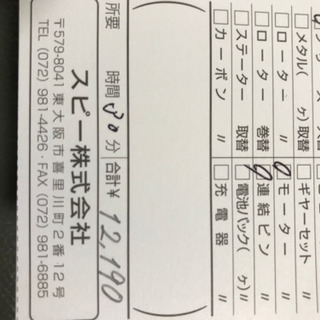 □メタル( ヶ)取替 □ギヤーセット 〃
□ローター 〃 □モーター 〃
□ローター 巻替 □連結ピン 〃
□ステーター 取替 □電池パック( ヶ) 〃
□カーボン 〃 □充電器 〃
所要 時間 30分 合計¥ 12,190
スピー株式会社
〒579-8041 東大阪市喜里川町2番12号
TEL (072) 981-4426・FAX (072) 981-6885